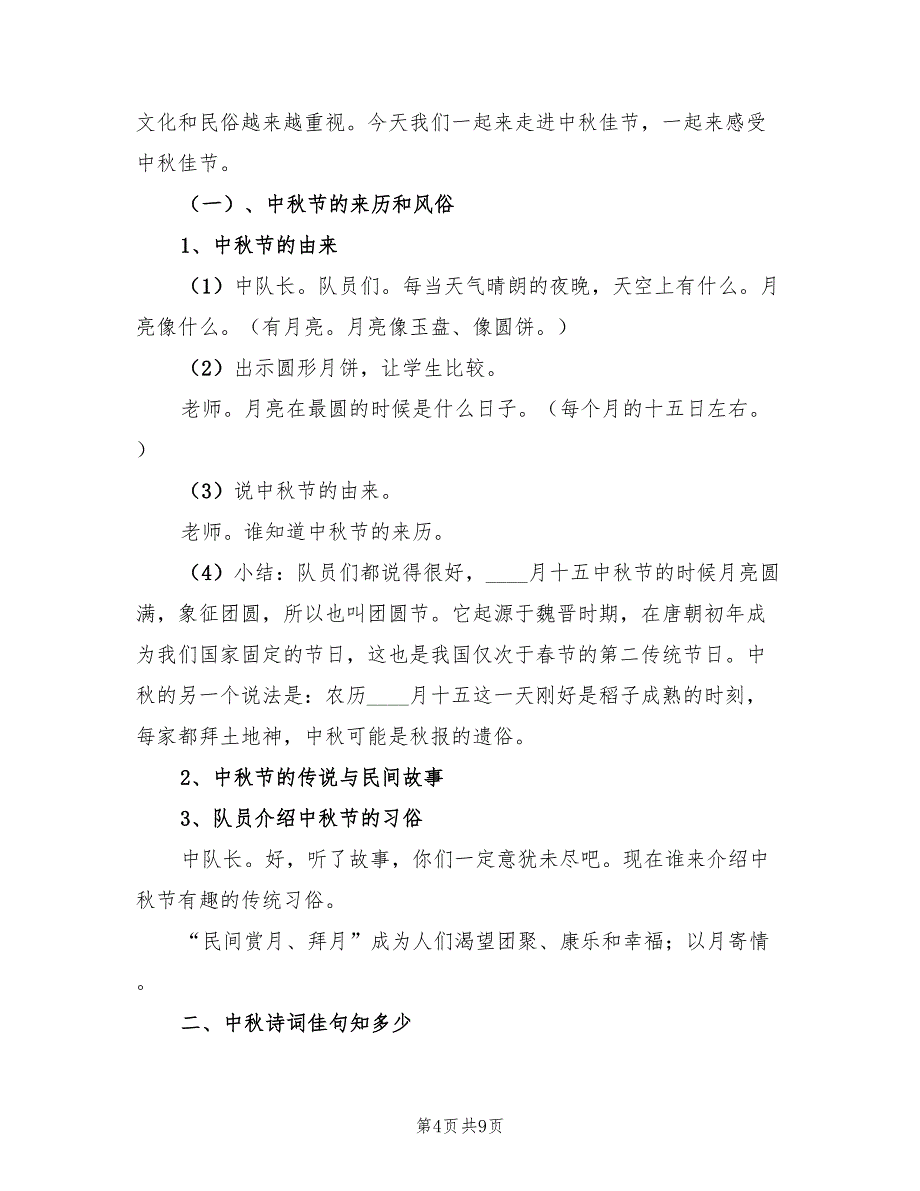 文化和民俗越来越重视。今天我们一起来走进中秋佳节，一起来感受
中秋佳节。
（一）、中秋节的来历和风俗
1、中秋节的由来
（1）中队长。队员们。每当天气晴朗的夜晚，天空上有什么。月
亮像什么。（有月亮。月亮像玉盘、像圆饼。）
（2）出示圆形月饼，让学生比较。
老师。月亮在最圆的时候是什么日子。（每个月的十五日左右。
）
（3）说中秋节的由来。
老师。谁知道中秋节的来历。
（4）小结：队员们都说得很好，____月十五中秋节的时候月亮圆
满，象征团圆，所以也叫团圆节。它起源于魏晋时期，在唐朝初年成
为我们国家固定的节日，这也是我国仅次于春节的第二传统节日。中
秋的另一个说法是：农历____月十五这一天刚好是稻子成熟的时刻，
每家都拜土地神，中秋可能是秋报的遗俗。
2、中秋节的传说与民间故事
3、队员介绍中秋节的习俗
中队长。好，听了故事，你们一定意犹未尽吧。现在谁来介绍中
秋节有趣的传统习俗。
“民间赏月、拜月”成为人们渴望团聚、康乐和幸福；以月寄情
。
二、中秋诗词佳句知多少
第4页 共9页